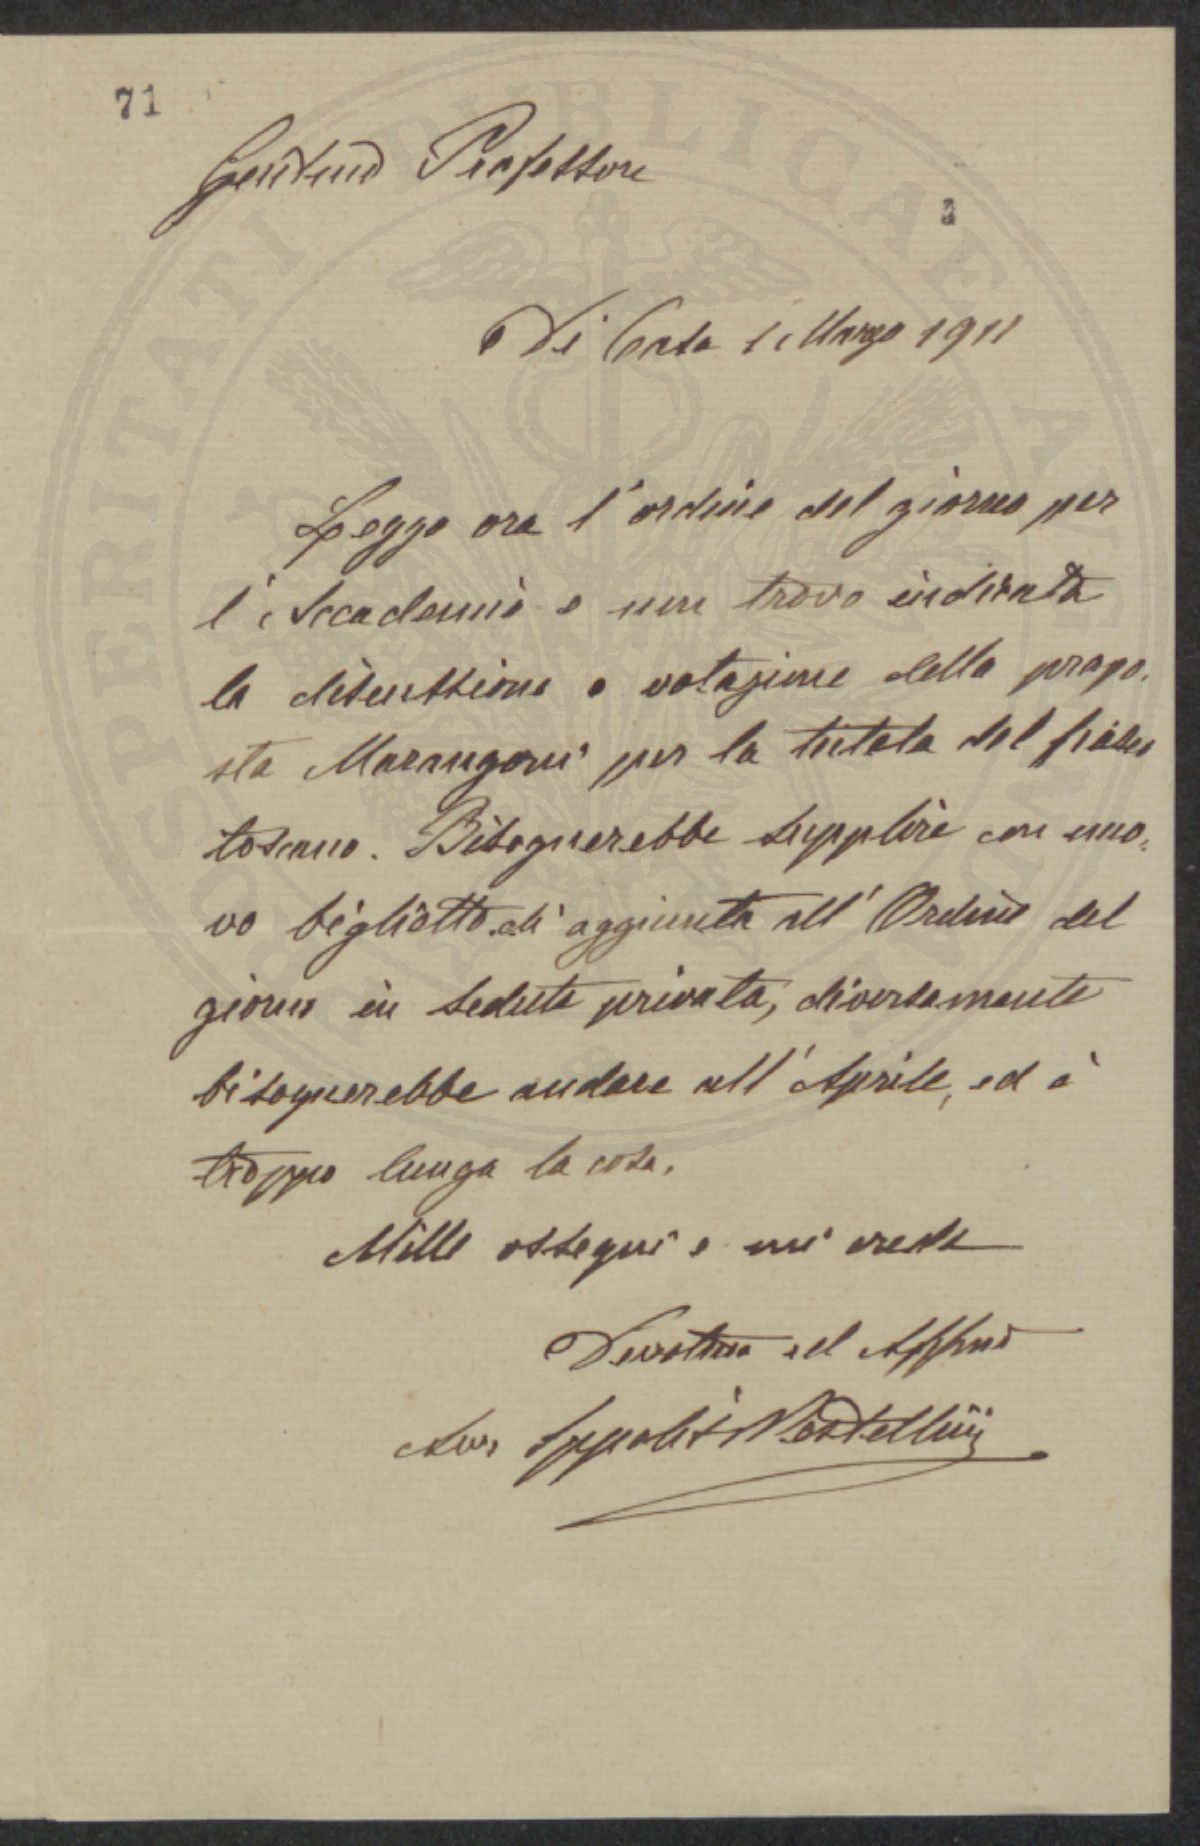 71
Gentmo Professore
3
Di Casa 1 Marzo 1911
Leggo ora l'ordine del giorno per
l'Accademia e non trovo indicata
la discussione e votazione della propo-
sta Marangoni per la tutela del fiasco
toscano. Bisognerebbe supplire con nuo-
vo biglietto di aggiunta all'Ordine del
giorno in seduta privata, diversamente
bisognerebbe andare all'Aprile, ed è
troppo lunga la cosa.
Mille ossequi e mi creda
Devotmo ed Affmo
Avv Ippolito Pestellini
PROSPERITATI PUBLICAE AUGENDAE